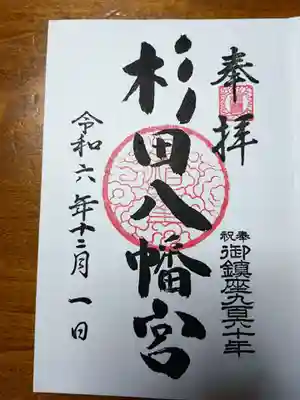 奉拝
奉祝 御鎮座九百六十年
杉田八幡宮
令和六年十二月一日